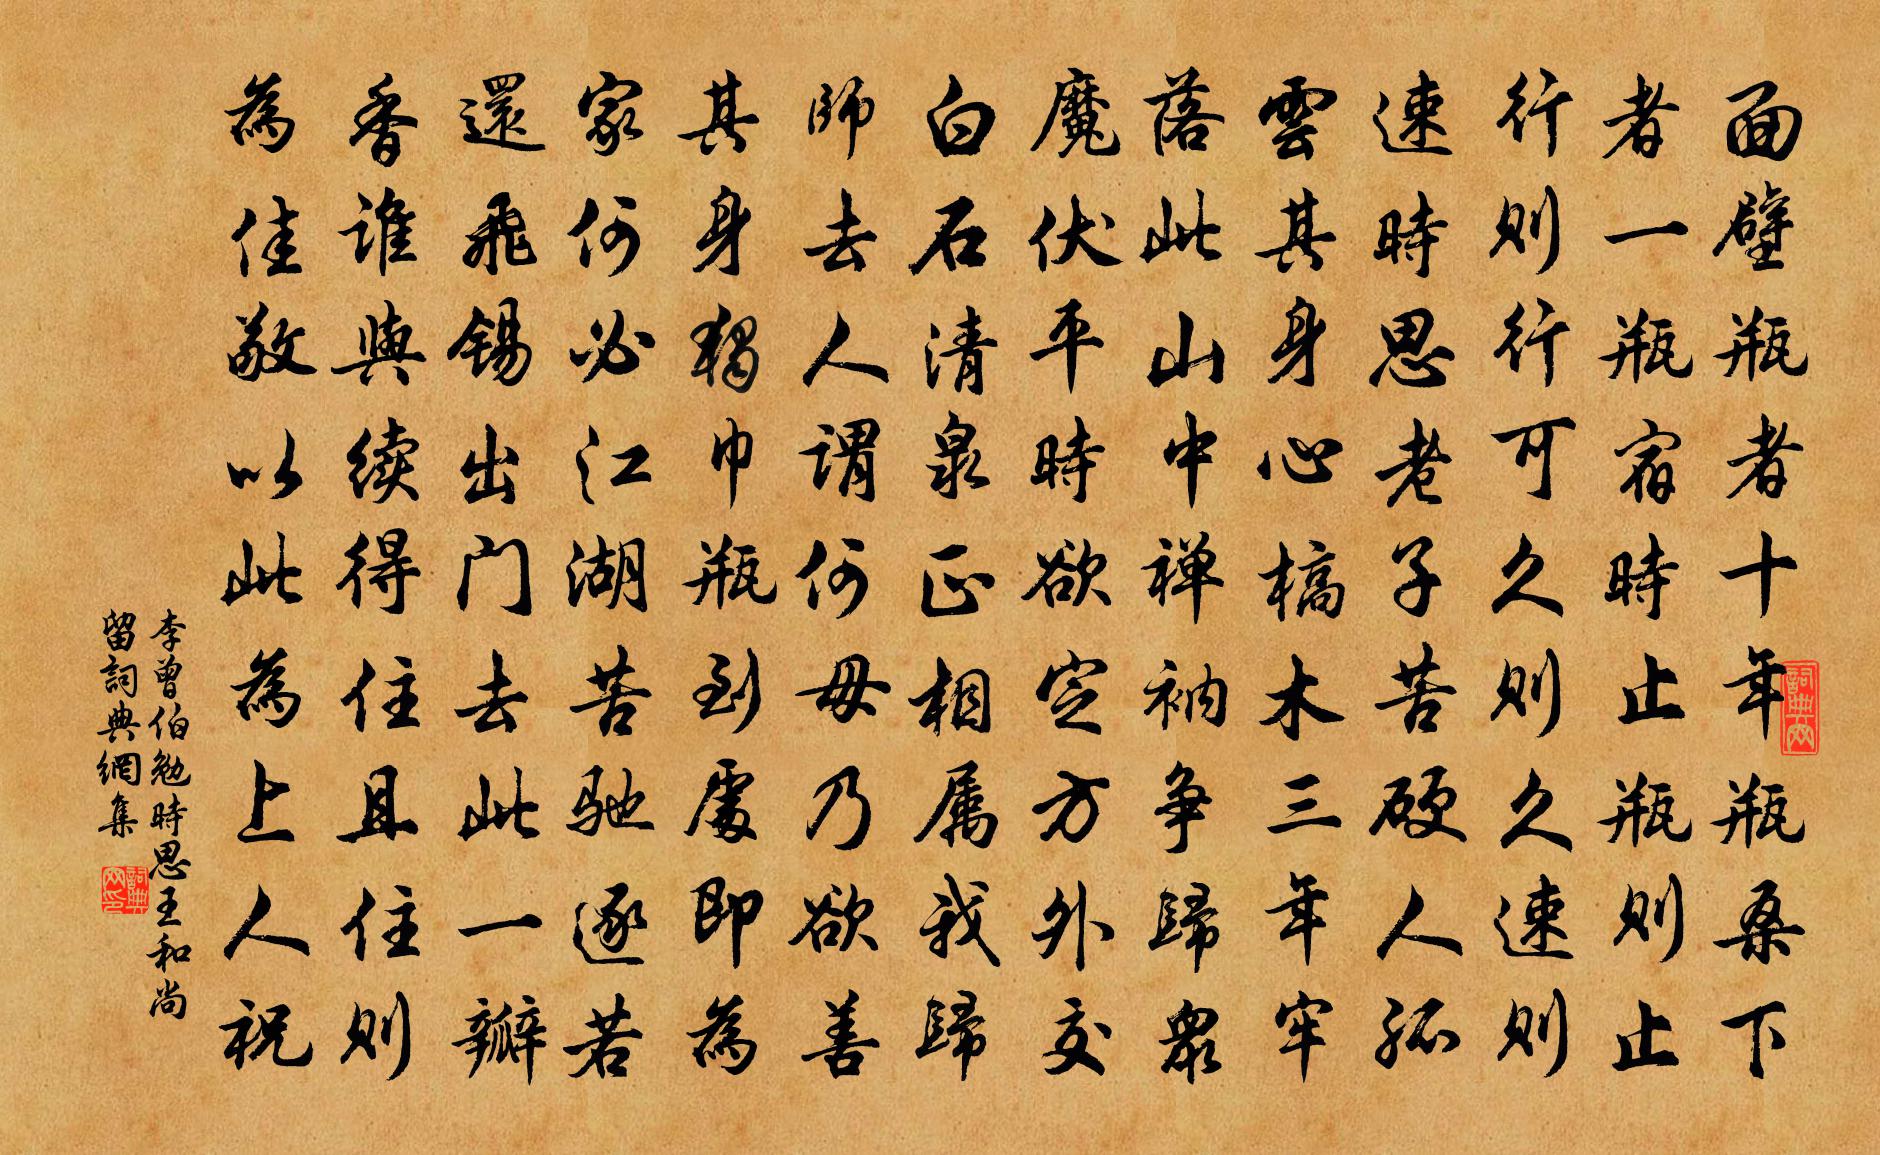 面壁瓶者十年瓶桑下
者一瓶宿時止瓶则止
行则行可久则久速则
速時思老子苦硬人孤
雲其身心槁木三年牢
落此山中禅衲争歸衆
魔伏平時欲定方外交
白石清泉正相属我歸
師去人謂何毋乃欲善
其身獨巾瓶到處即為
家何必江湖苦驰逐若
還飛錫出门去此一瓣
香谁與续得住且住则
為佳敬以此為上人祝
李曾伯勉時思王和尚
留詞典網集
詞典网
詞典网印